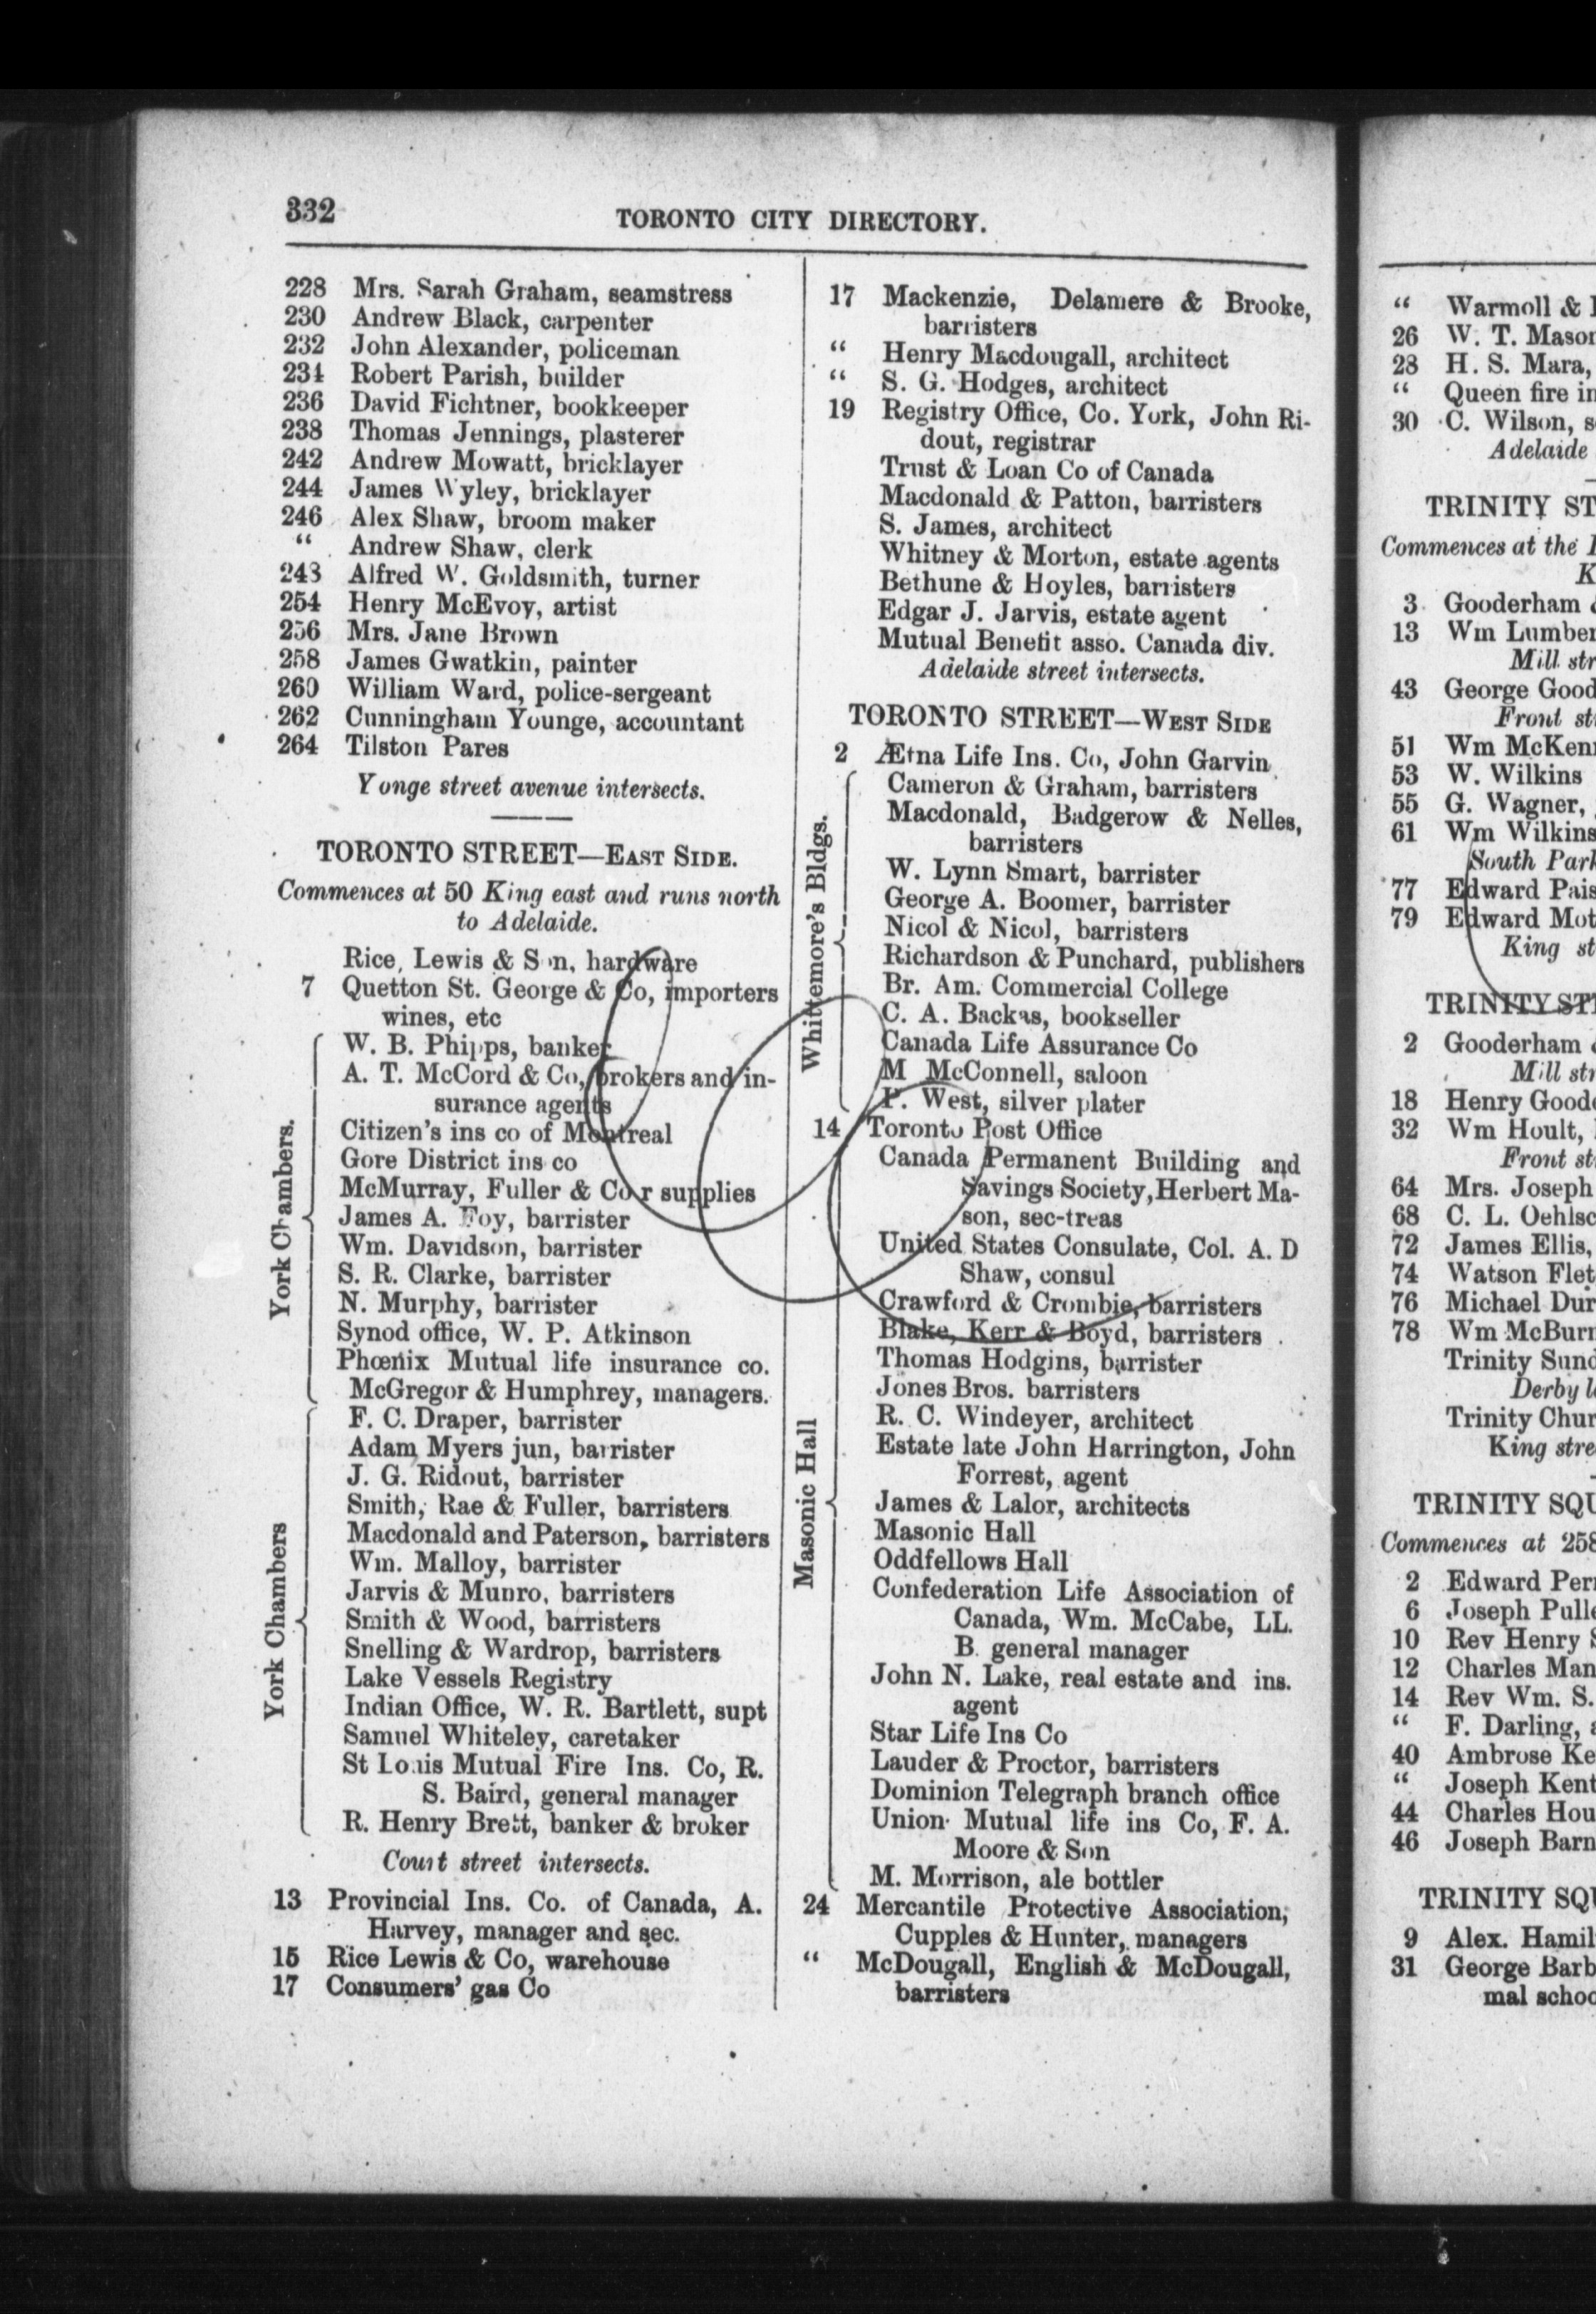 332
TORONTO CITY DIRECTORY.
228 Mrs. Sarah Graham, seamstress
230 Andrew Black, carpenter
232 John Alexander, policeman
234 Robert Parish, builder
236 David Fichtner, bookkeeper
238 Thomas Jennings, plasterer
242 Andrew Mowatt, bricklayer
244 James Wyley, bricklayer
246 Alex Shaw, broom maker
“ Andrew Shaw, clerk
248 Alfred W. Goldsmith, turner
254 Henry McEvoy, artist
256 Mrs. Jane Brown
258 James Gwatkin, painter
260 William Ward, police-sergeant
262 Cunningham Younge, accountant
264 Tilston Pares
Yonge street avenue intersects.
TORONTO STREET—EAST SIDE.
Commences at 50 King east and runs north
to Adelaide.
Rice, Lewis & Son, hardware
7 Quetton St. George & Co, importers
wines, etc
York Chambers.
W. B. Phipps, banker
A. T. McCord & Co, brokers and in-
surance agents
Citizen's ins co of Montreal
Gore District ins co
McMurray, Fuller & Co r supplies
James A. Foy, barrister
Wm. Davidson, barrister
S. R. Clarke, barrister
N. Murphy, barrister
Synod office, W. P. Atkinson
Phœnix Mutual life insurance co.
McGregor & Humphrey, managers.
York Chambers
F. C. Draper, barrister
Adam Myers jun, barrister
J. G. Ridout, barrister
Smith, Rae & Fuller, barristers
Macdonald and Paterson, barristers
Wm. Malloy, barrister
Jarvis & Munro, barristers
Smith & Wood, barristers
Snelling & Wardrop, barristers
Lake Vessels Registry
Indian Office, W. R. Bartlett, supt
Samuel Whiteley, caretaker
St Louis Mutual Fire Ins. Co, R.
S. Baird, general manager
R. Henry Brett, banker & broker
Court street intersects.
13 Provincial Ins. Co. of Canada, A.
Harvey, manager and sec.
15 Rice Lewis & Co, warehouse
17 Consumers' gas Co
17 Mackenzie, Delamere & Brooke,
barristers
“ Henry Macdougall, architect
“ S. G. Hodges, architect
19 Registry Office, Co. York, John Ri-
dout, registrar
Trust & Loan Co of Canada
Macdonald & Patton, barristers
S. James, architect
Whitney & Morton, estate agents
Bethune & Hoyles, barristers
Edgar J. Jarvis, estate agent
Mutual Benefit asso. Canada div.
Adelaide street intersects.
TORONTO STREET—WEST SIDE
2 Ætna Life Ins. Co, John Garvin
Whittemore's Bldgs.
Cameron & Graham, barristers
Macdonald, Badgerow & Nelles,
barristers
W. Lynn Smart, barrister
George A. Boomer, barrister
Nicol & Nicol, barristers
Richardson & Punchard, publishers
Br. Am. Commercial College
C. A. Backas, bookseller
Canada Life Assurance Co
M McConnell, saloon
P. West, silver plater
14 Toronto Post Office
Masonic Hall
Canada Permanent Building and
Savings Society, Herbert Ma-
son, sec-treas
United States Consulate, Col. A. D
Shaw, consul
Crawford & Crombie, barristers
Blake, Kerr & Boyd, barristers
Thomas Hodgins, barrister
Jones Bros. barristers
R. C. Windeyer, architect
Estate late John Harrington, John
Forrest, agent
James & Lalor, architects
Masonic Hall
Oddfellows Hall
Confederation Life Association of
Canada, Wm. McCabe, LL.
B. general manager
John N. Lake, real estate and ins.
agent
Star Life Ins Co
Lauder & Proctor, barristers
Dominion Telegraph branch office
Union Mutual life ins Co, F. A.
Moore & Son
M. Morrison, ale bottler
24 Mercantile Protective Association,
Cupples & Hunter, managers
“ McDougall, English & McDougall,
barristers
“ Warmoll &
26 W. T. Mason
28 H. S. Mara,
“ Queen fire in
30 C. Wilson, s
Adelaide
TRINITY ST
Commences at the
K
3 Gooderham
13 Wm Lumber
Mill str
43 George Good
Front st
51 Wm McKen
53 W. Wilkins
55 G. Wagner,
61 Wm Wilkins
South Park
77 Edward Pais
79 Edward Mot
King st
TRINITY ST
2 Gooderham
Mill str
18 Henry Good
32 Wm Hoult,
Front st
64 Mrs. Joseph
68 C. L. Oehlsc
72 James Ellis,
74 Watson Flet
76 Michael Dur
78 Wm McBurn
Trinity Sund
Derby l
Trinity Chur
King stre
TRINITY SQU
Commences at 258
2 Edward Per
6 Joseph Pull
10 Rev Henry S
12 Charles Man
14 Rev Wm. S.
“ F. Darling, a
40 Ambrose Ke
“ Joseph Kent
44 Charles Hou
46 Joseph Barn
TRINITY SQU
9 Alex. Hamil
31 George Barb
mal schoo